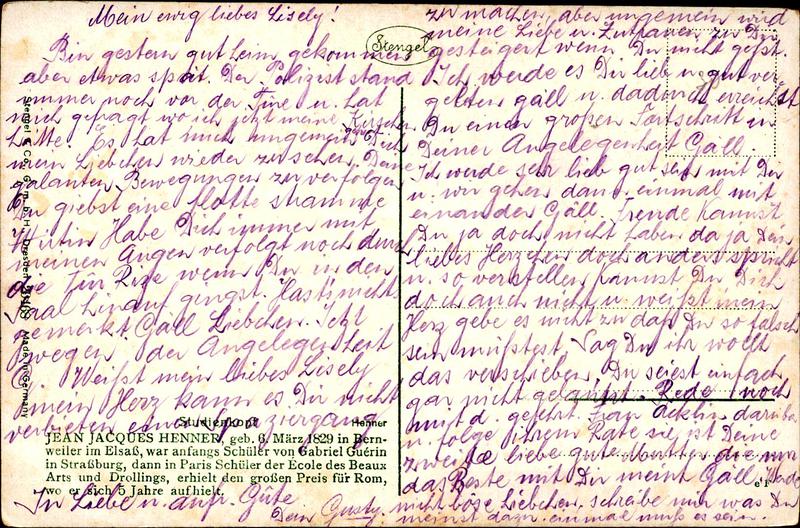 Mein ewig liebes Lisely!
Bin gestern gut heim gekommen
aber etwas spät. Der Polizist stand
immer noch vor der Türe u. hat
mich gefragt wo ich jetzt meine Kirschen
hätte. Es hat mich ungemein gefreut Dich
mein Liebchen wieder zu sehen. Deine
galanten Bewegungen zu verfolgen
Du giebst eine flotte stramme
Wirtin Habe Dich immer mit
meinen Augen verfolgt noch durch
die Tür Rize wenn Du in den
Saal hinauf gingst. Hast nichts
gemerkt Gäll Liebchen. Jetzt
wegen der Angelegenheit
Weißt mein liebes Lisely
mein Herz kann es Dir nicht
verbieten einen Spaziergang
zu machen, aber ungemein wird
meine Liebe u. Zutrauen zu Dir
gesteigert wenn Du nicht gehst.
Ich werde es Dir lieb u. gut ver-
gelten gäll u. dadurch erreichst
Du einen großen Fortschritt in
Deiner Angelegenheit Gäll.
Ich werde sehr lieb gut sein mit Dir
u. wir gehen dann einmal mit
einander Gäll. Freude kannst
Du ja doch nicht haben da ja Dein
liebes Herzchen doch anders spricht
u. so verstellen kannst Du Dich
doch auch nicht u. weißt mein
Herz gebe es nicht zu daß Du so falsch
sein müßtest. Sag Du ihr wollt
das verschieben, Du seiest einfach
gar nicht gelaunt. Rede noch
mit d. gesehrt. Frau darüber
u. folge ihrem Rate sie ist Deine
zweite liebe gute Mutter die nur
das Beste mit Dir meint Gäll. Werde
nicht böse Liebchen, schreibe mir was Du
meinst dazu. einmal muß es sein.
In Liebe u. aufr. Güte
Dein Gusty.
Stengel
Stengel & Co., G. m. b. H., Dresden Made in Germany
Studienkopf Henner
JEAN JACQUES HENNER, geb. 6. März 1829 in Bern-
weiler im Elsaß, war anfangs Schüler von Gabriel Guérin
in Straßburg, dann in Paris Schüler der École des Beaux
Arts und Drollings, erhielt den großen Preis für Rom,
wo er sich 5 Jahre aufhielt.